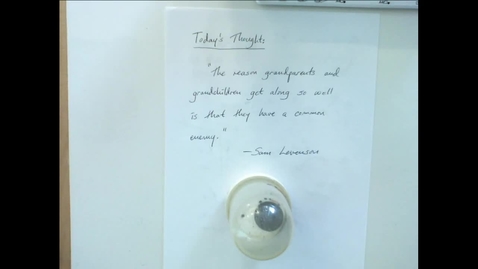 Today's Thoughts
"The reason grandparents and
grandchildren get along so well
is that they have a common
enemy."
—Sam Levenson